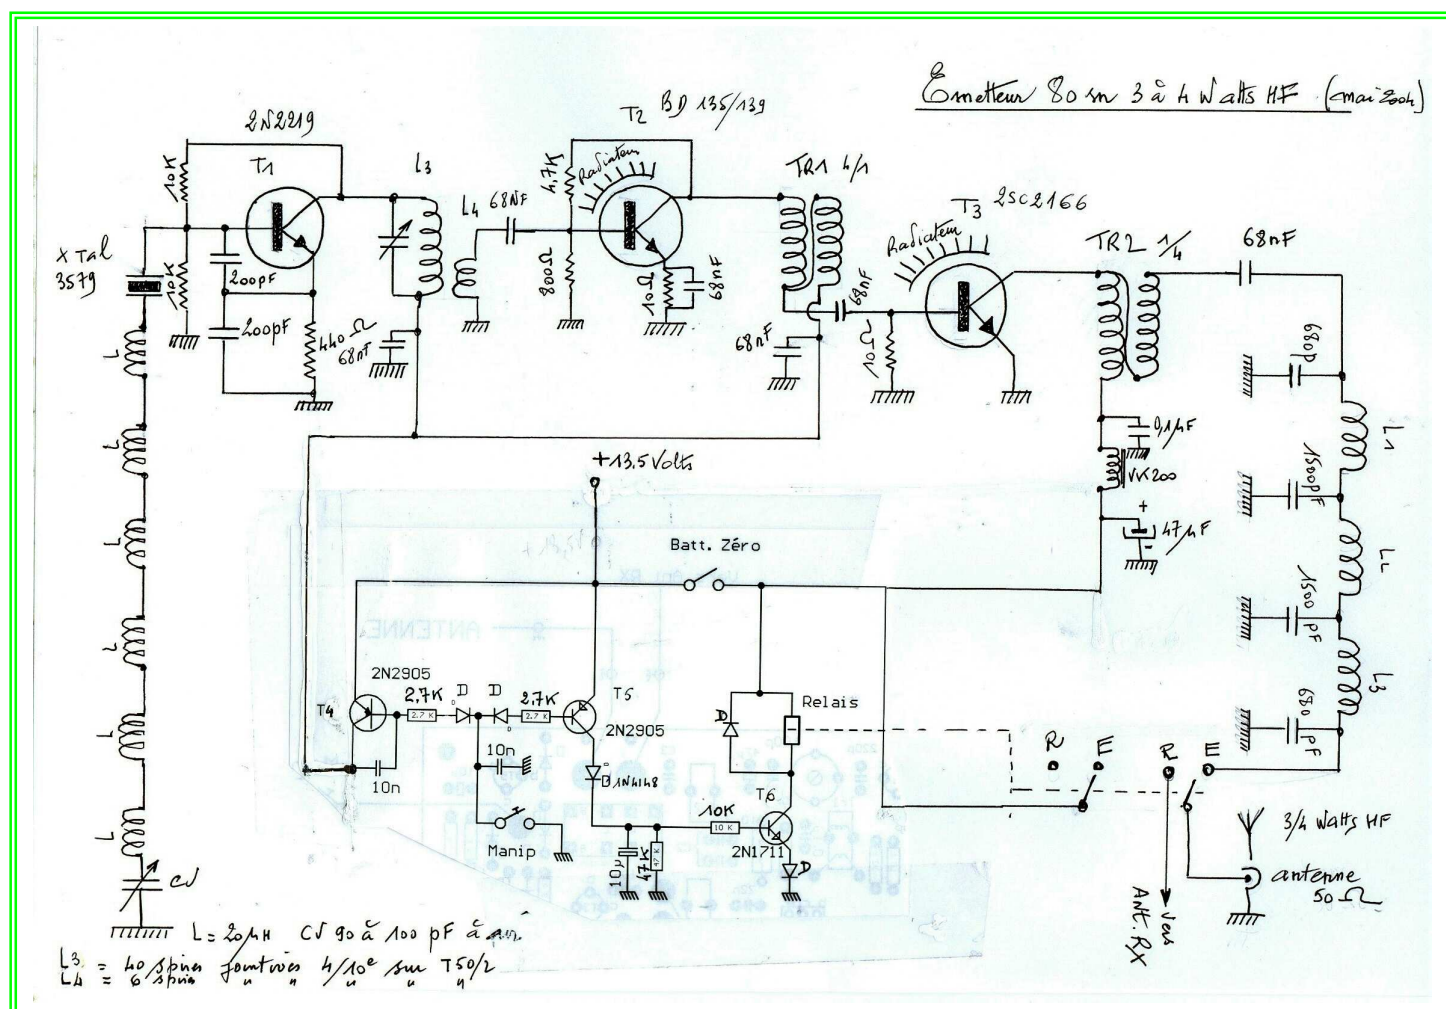 Emetteur 80 m 3 à 4 Watts HF (mai 2004)
2N2219
T1
10K
10K
X Tal
3579
200pF
200pF
440Ω
68nF
L3
L4
68NF
T2 BD 135/139
Radiateur
4,7K
800Ω
10Ω
68nF
TR1 4/1
68nF
68nF
T3 2SC2166
Radiateur
10Ω
TR2 1/4
68nF
680p
L1
1500pF
L2
1500 pF
L3
680 pF
0,1µF
VK200
+
47µF
-
L
L
L
L
L
L
CV
+13.5 Volts
Batt. Zéro
2N2905
T4
2,7K
2.7 K
D
D
D
D
2,7K
2.7 K
T5
2N2905
10n
10n
D 1N4148
Manip
10µ
47K
47 K
10K
10 K
T6
2N1711
D
D
Relais
R
E
R
E
3/4 Watts HF
antenne
50Ω
Vers
ANT. RX
L = 20µH CV 90 à 100 pF à air
L3 = 40 spires jointives 4/10e sur T50/2
L4 = 6 spires " " " " "